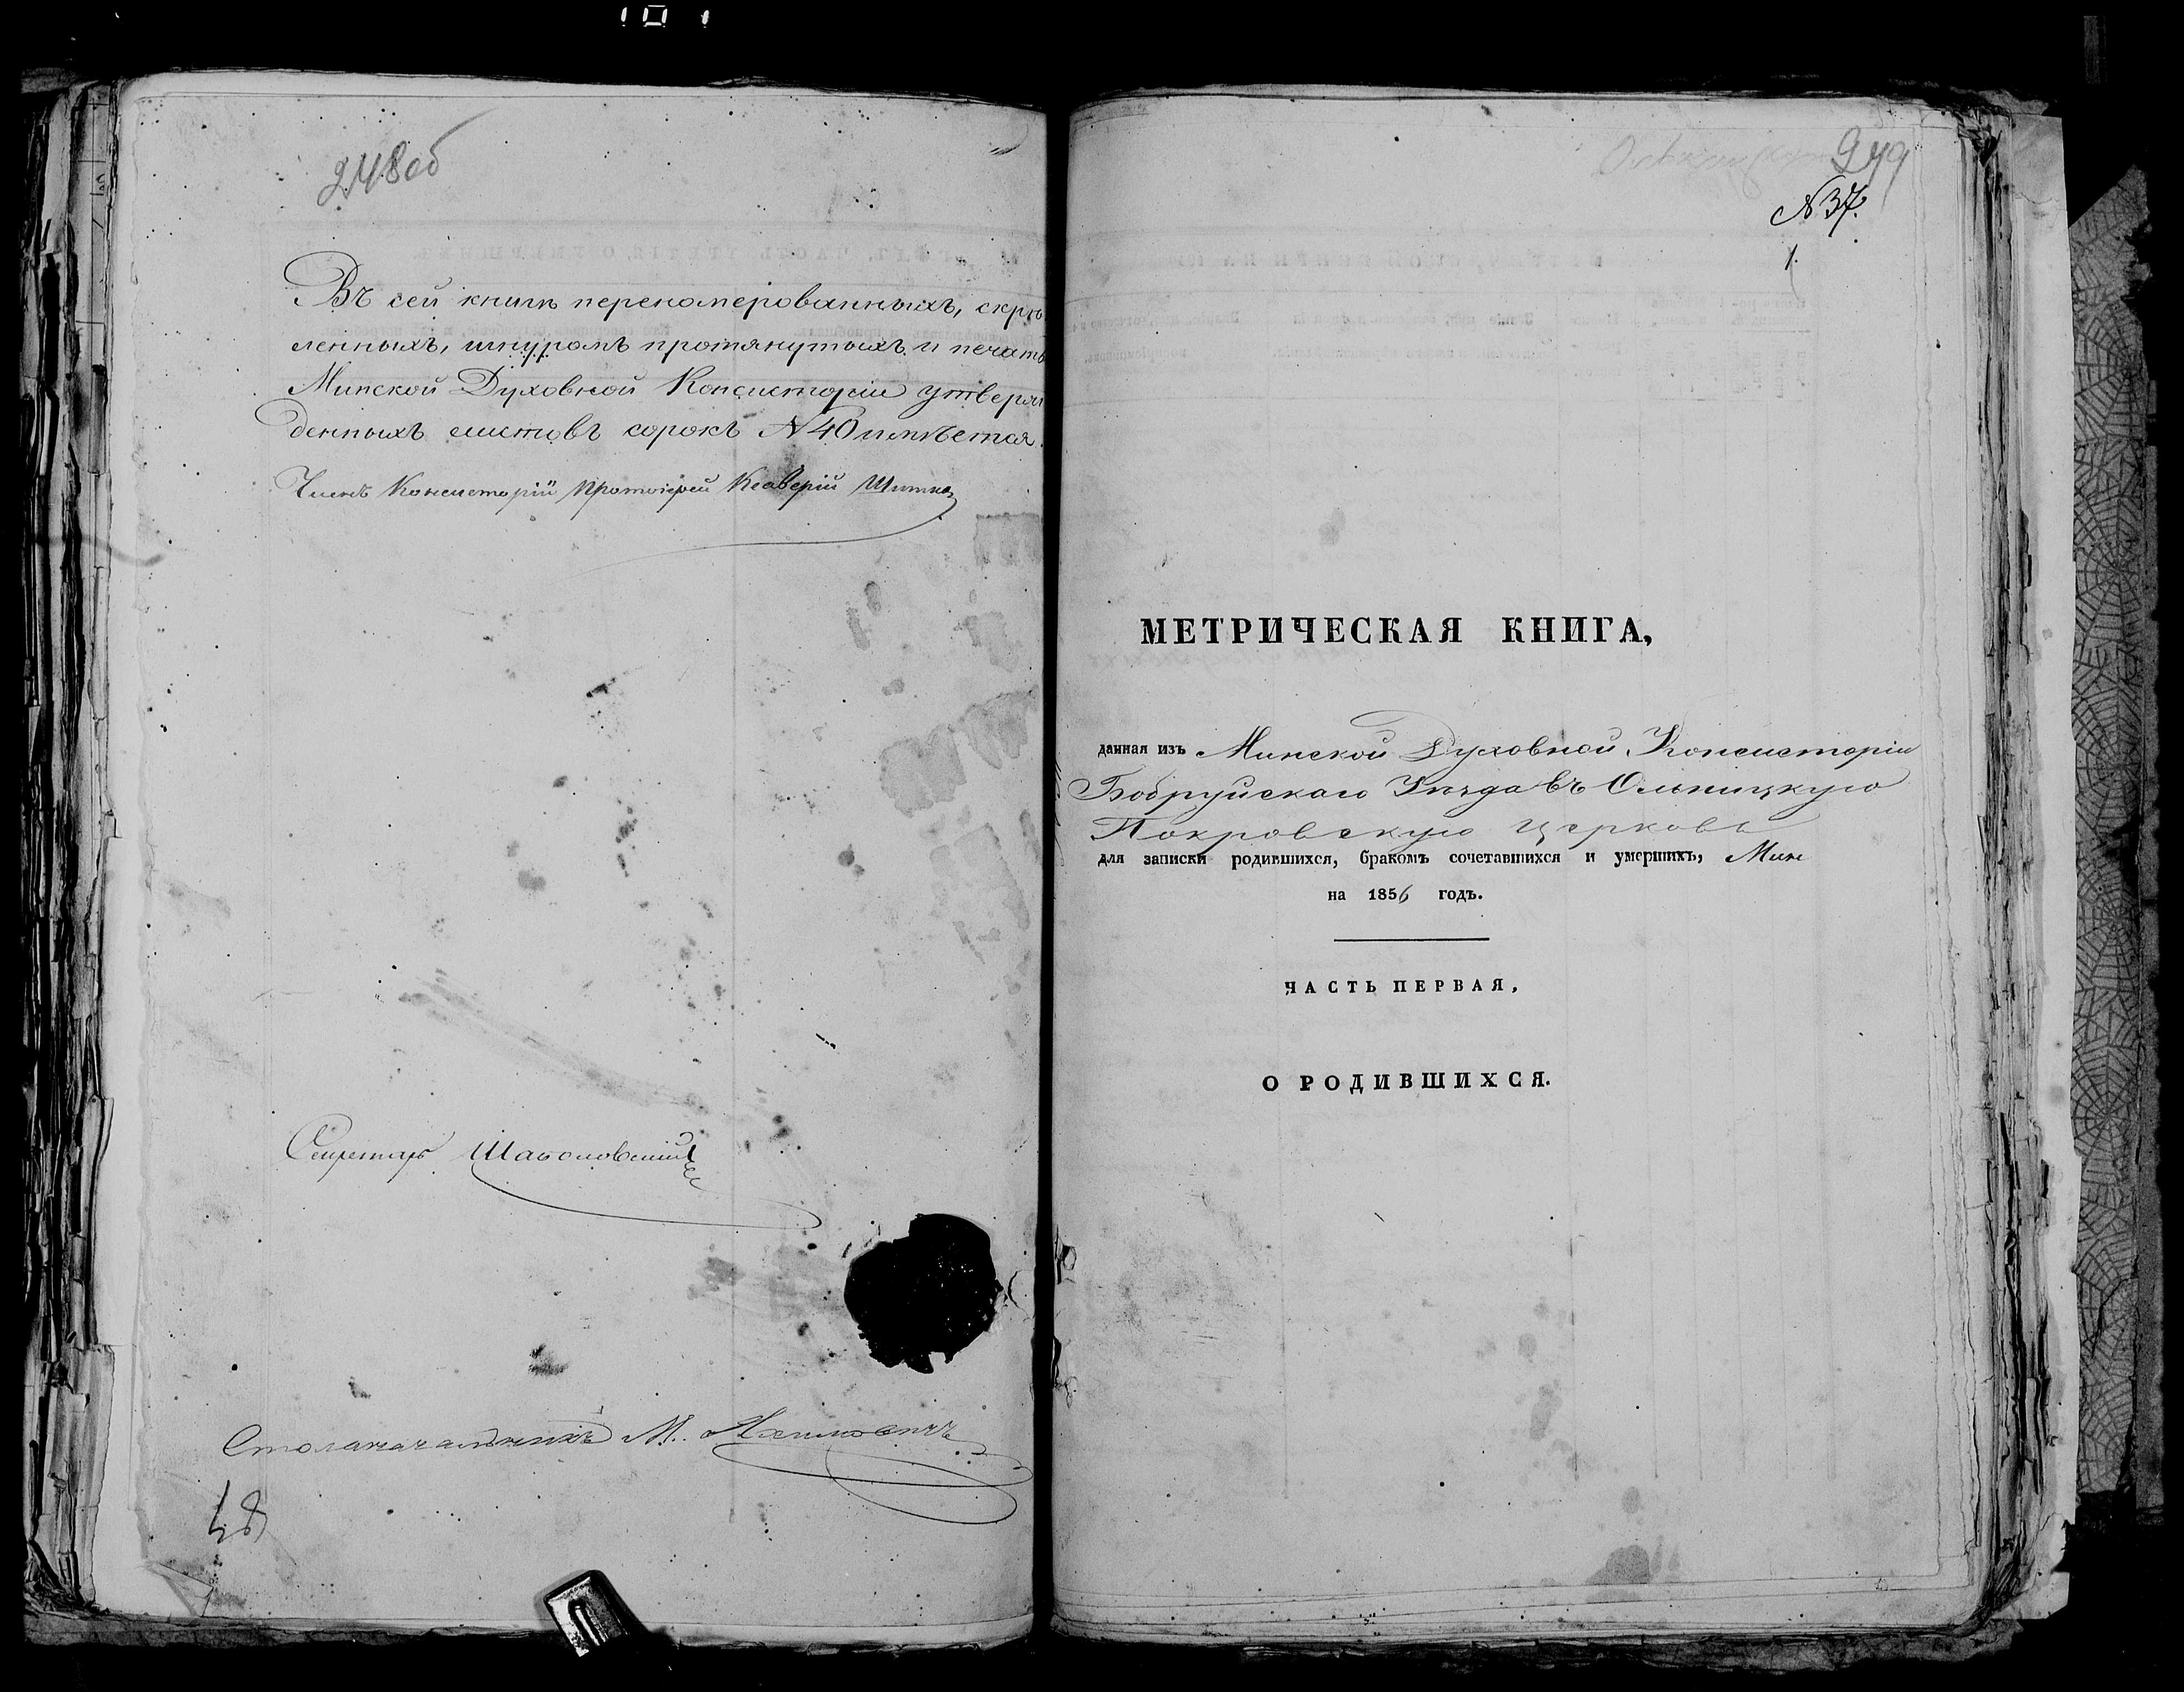 101
248об
Въ сей книгѣ переномерованныхъ, скрѣ
ленныхъ, шнуромъ протянутыхъ и печатью
Минской Духовной Консисторіи утверж
денныхъ листовъ сорокъ N 40 имѣется.
Членъ Консисторіи Протоіерей Ксаверій
Секретарь
Столоначальникъ М.
249
N 37.
1.
МЕТРИЧЕСКАЯ КНИГА,
данная изъ Минской Духовной Консисторіи
Бобруйскаго Уѣзда въ Ольницкую
Покровскую церковь
для записки родившихся, бракомъ сочетавшихся и умершихъ,
на 1856 годъ.
ЧАСТЬ ПЕРВАЯ,
О РОДИВШИХСЯ.